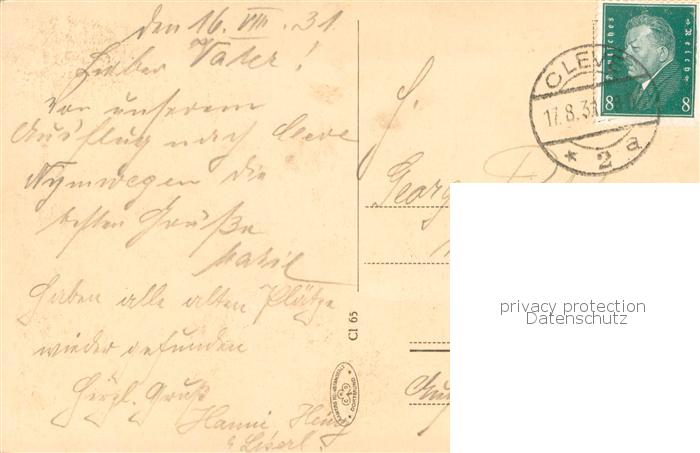 den 16. VIII. 31.
Lieber Vater!
Von unserem
Ausflug nach Cleve
Nymwegen die
besten Grüße
Haben alle alten Plätze
wieder gefunden
Herzl. Gruß
Hanni, Heinz
& Liserl.
H.
Georg
Cl 65
DORTMUND
Deutsches Reich
8 8
CLEVE
17.8.31
* 2 a
privacy protection
Datenschutz